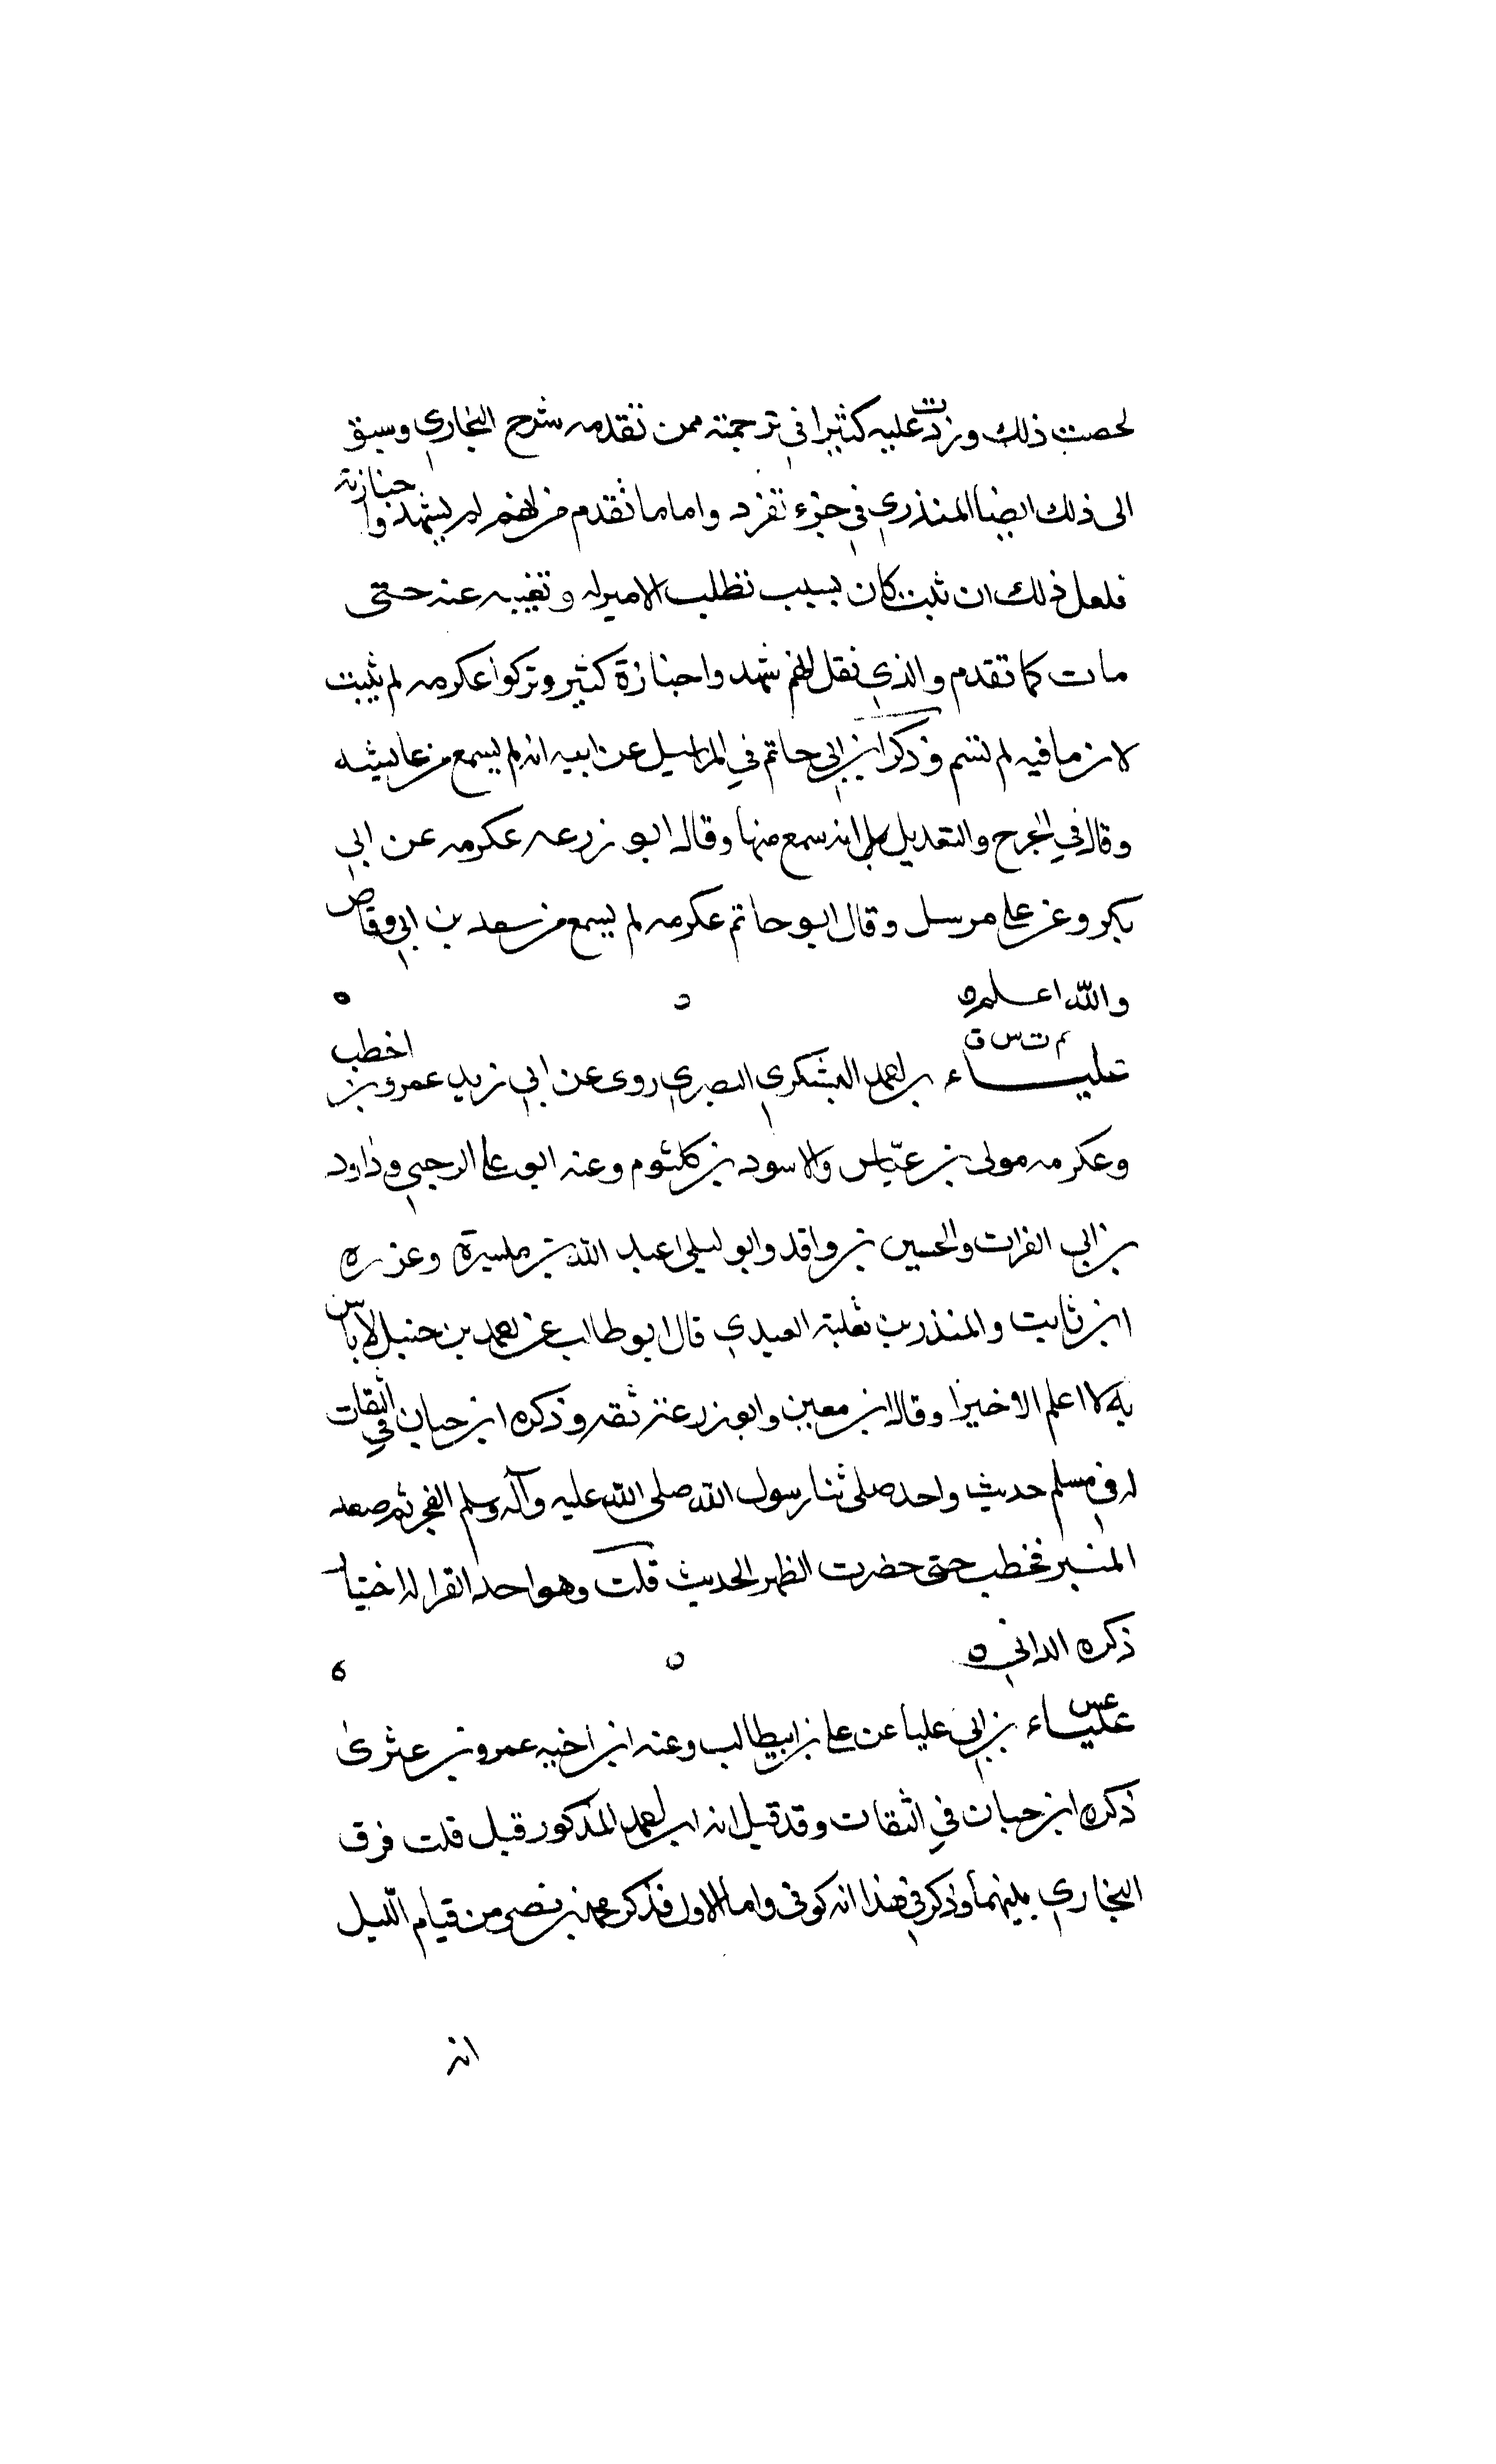 لخصت ذلك وزدت عليه كثيرا في ترجمته ممن تقدمه شرح البخاري وسبق
الى ذلك ايضا المنذري في جزء تفرد واما ما تقدم من انهم لم يشهدوا جنازته
فلعل ذلك ان ثبت كان بسبب تطلب الامير له وتغيبه عنه حتى
مات كما تقدم والذي نقل انهم شهدوا جنازة كثير وتركوا عكرمه لم يثبت
لان ما فيه لم تسم وذكر ابن ابي حاتم في المراسيل عن ابيه انه لم يسمع من عايشه
وقال في الجرح والتعديل بل انه سمع منها وقال ابو زرعه عكرمه عن ابي
بكر وعن علي مرسل وقال ابو حاتم عكرمه لم يسمع من سعد بن ابي وقاص
والله اعلم ه ه ه
م ت س ق
علبــاء بن احمد اليشكري البصري روى عن ابي زيد عمرو بن اخطب
وعكرمه مولى بن عباس والاسود بن كلثوم وعنه ابو علي الرحبي وداود
بن ابي الفرات والحسين بن واقد وابو ليلى عبد الله بن ميسرة وعزره
ابن ثابت والمنذر بن ثعلبة العبدي قال ابو طالب عن احمد بن حنبل لا باس
به لا اعلم الا خيرا وقال ابن معين وابو زرعة ثقه وذكره ابن حبان في الثقات
له في مسلم حديث واحد صلى بنا رسول الله صلى الله عليه وآله وسلم الفجر ثم صعد
المنبر فخطب حتى حضرت الظهر الحديث قلت وهو احد القرا له اختيار
ذكره الداني ه ه ه
عس
علبــاء بن ابي علبا عن علي بن ابي طالب وعنه ابن اخيه عمرو بن عثرى
ذكره ابن حبان في الثقات وقد قيل انه ابن احمد المذكور قبل قلت فرق
البخاري بينهما وذكر في هذا انه كوفي واما الاول فذكر محمد بن نصر من قيام الليل
انه